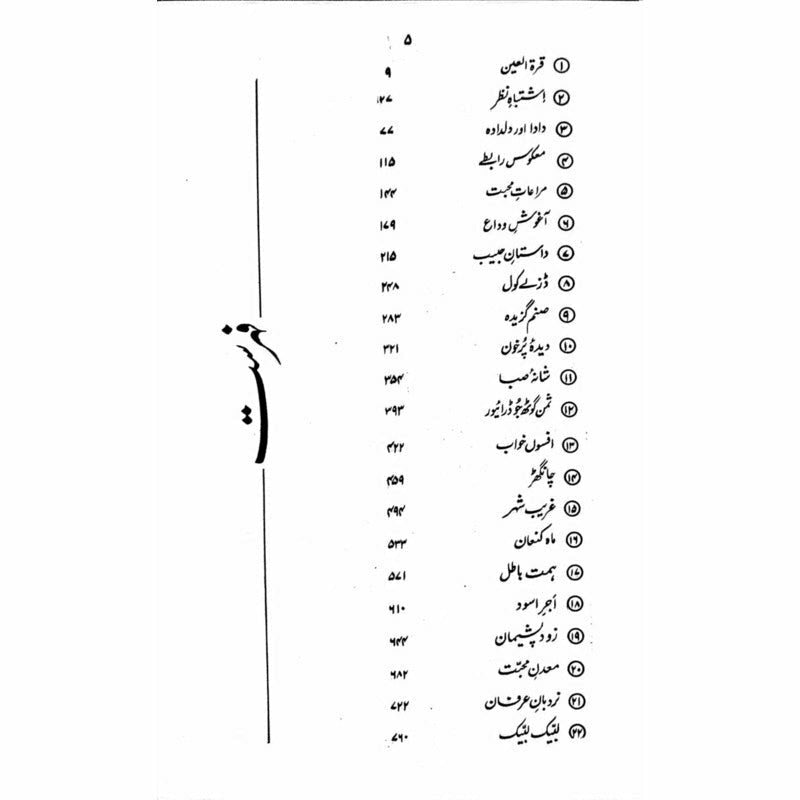 ۵
① قرۃ العین ۹
② اشتباہِ نظر ۱۲۷
③ دادا اور دلدادہ ۷۷
④ معکوس رابطے ۱۱۵
⑤ مراعاتِ محبت ۱۴۴
⑥ آغوشِ وداع ۱۷۹
⑦ داستانِ حبیب ۲۱۵
⑧ ڈزبے کول ۲۴۸
⑨ صنم گزیدہ ۲۸۳
⑩ دیدۂ پُرخون ۳۲۱
⑪ شانۂ صبا ۳۵۴
⑫ ثمن گوٹھ جُو ڈرائیور ۳۹۳
⑬ افسوں خواب ۴۲۲
⑭ چانگھڑ ۴۵۹
⑮ غریب شہر ۴۹۴
⑯ ماہ کنعان ۵۳۳
⑰ ہمت باطل ۵۷۱
⑱ اجرِ اسود ۶۱۰
⑲ زود پشیمان ۶۴۴
⑳ معدنِ محبّت ۶۸۲
㉑ نردبانِ عرفان ۷۲۲
㉒ لبّیک لبّیک ۷۶۰
فہرست